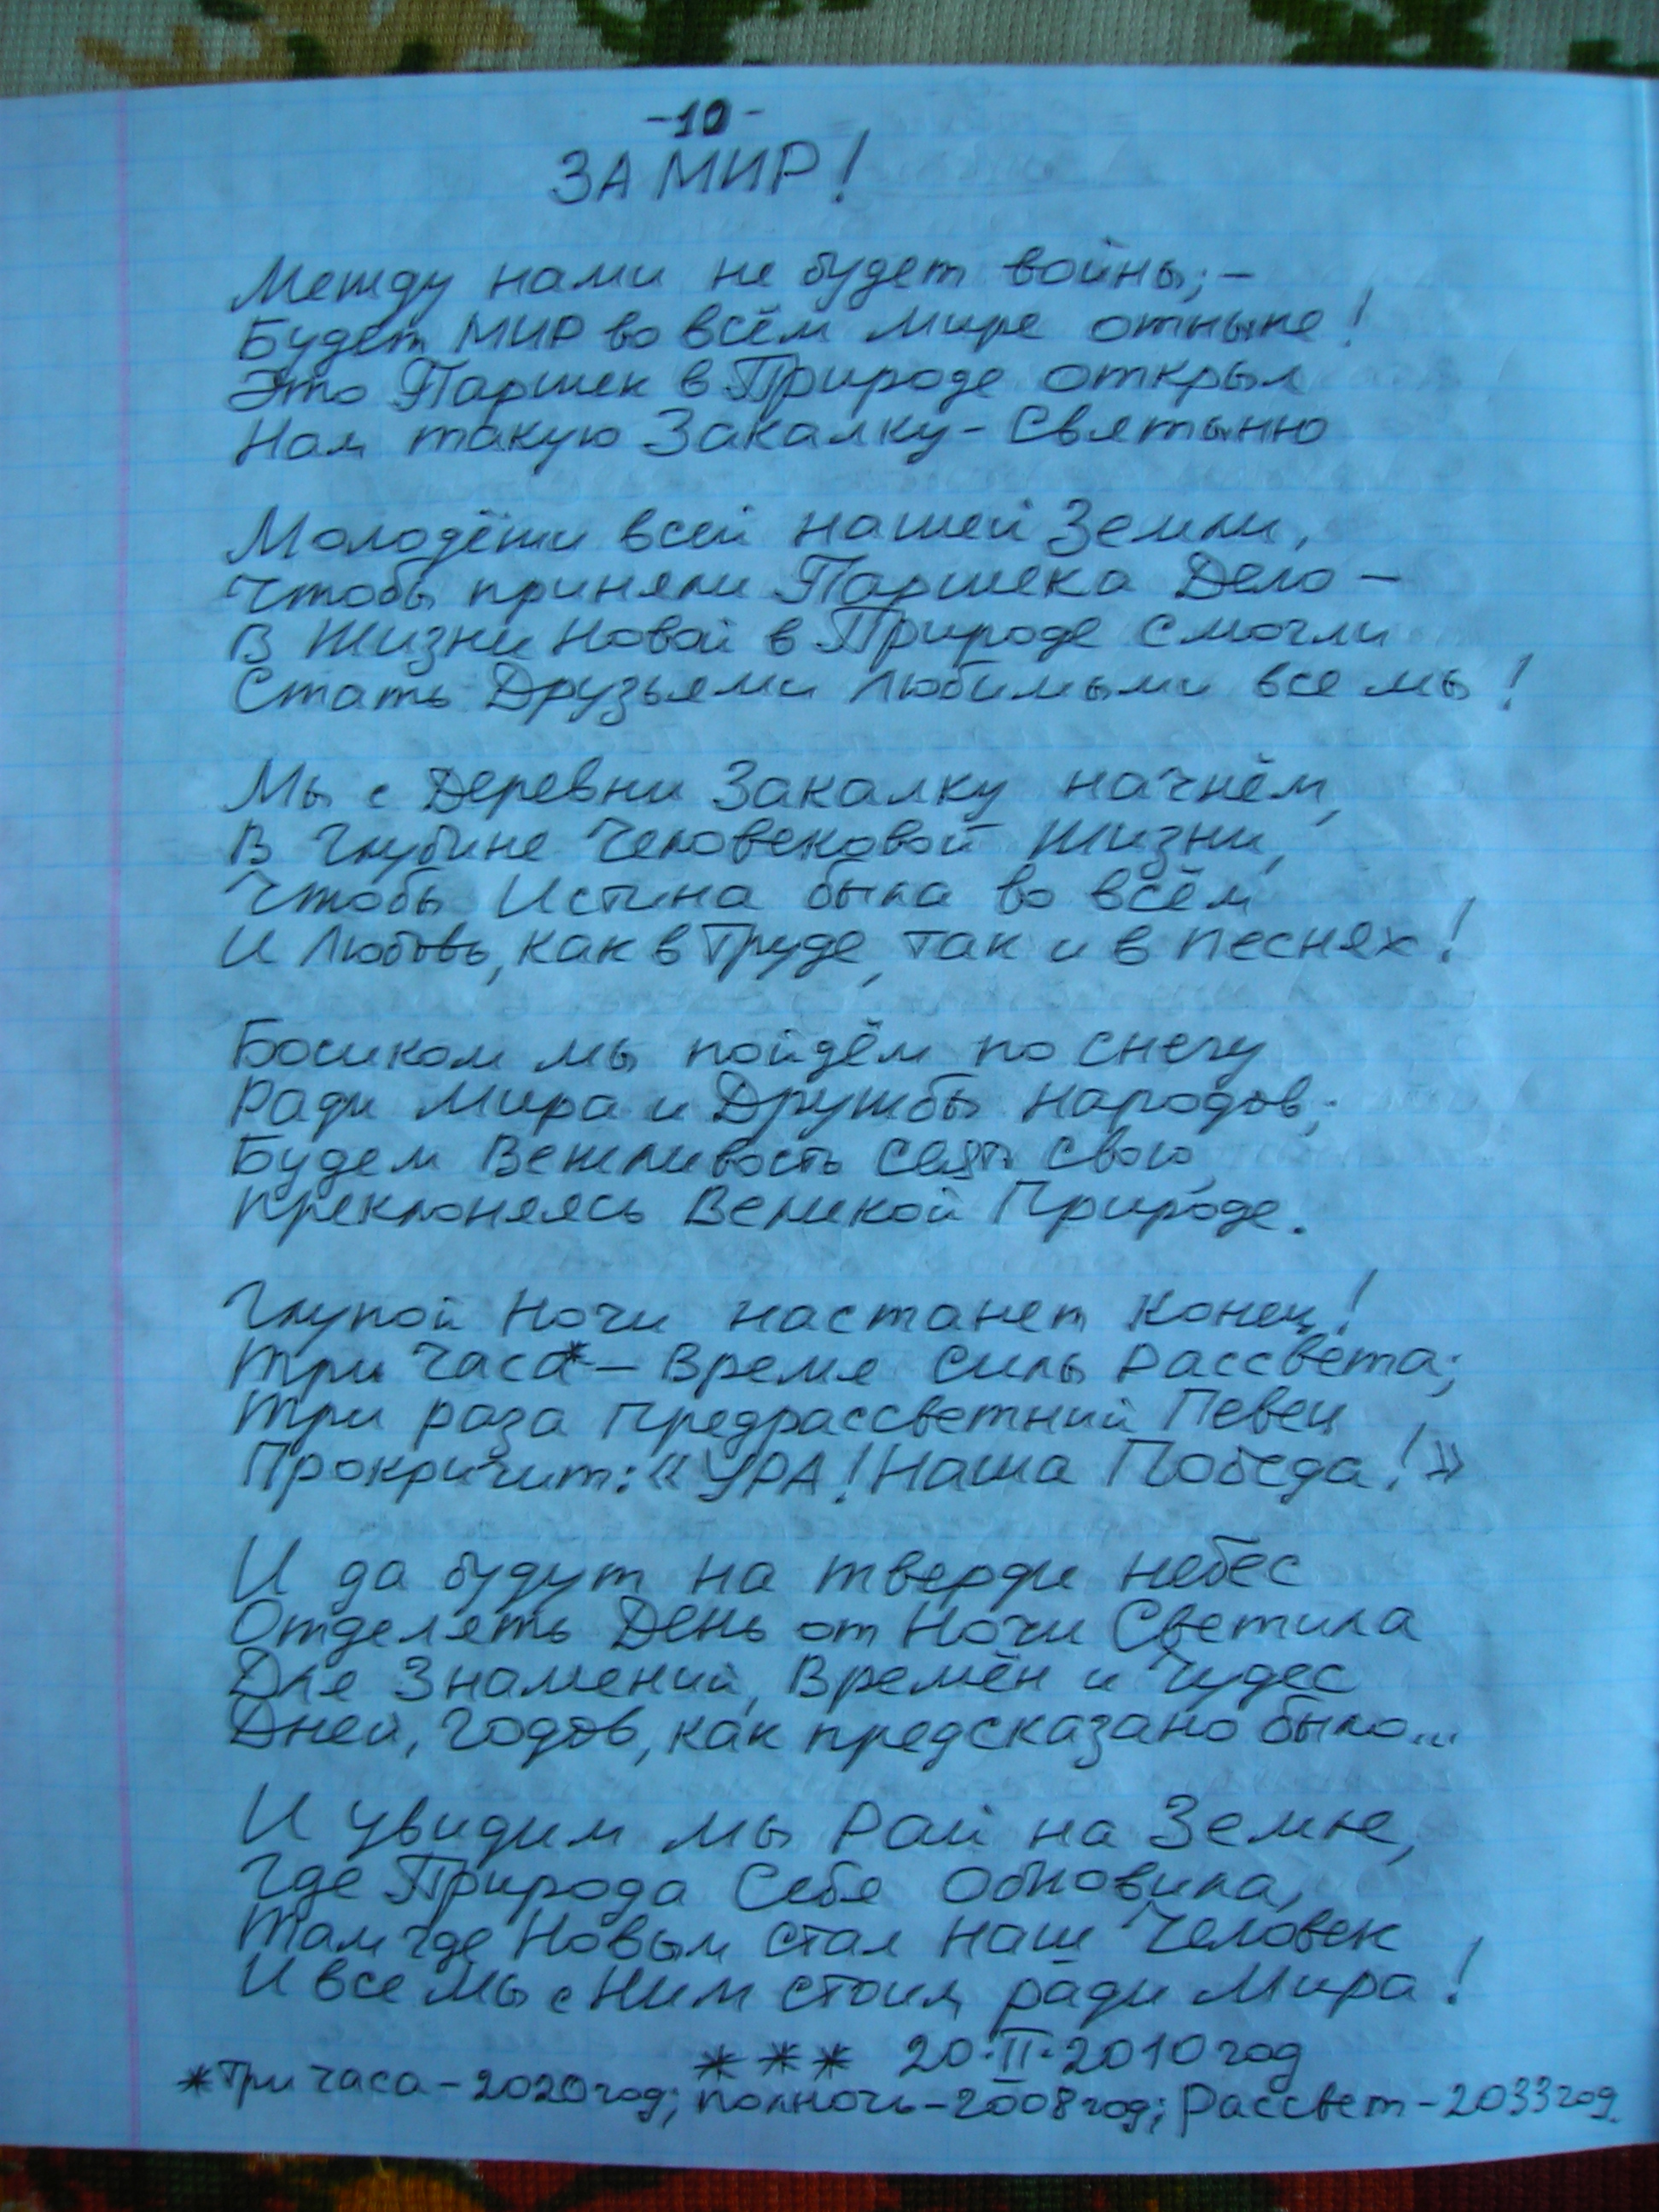 -10-
ЗА МИР!
Между нами не будет войны; -
Будет МИР во всём мире отныне!
Это Паршек в Природе открыл
Нам такую Закалку - Святыню
Молодёжи всей нашей Земли,
Чтобы приняли Паршека Дело -
В Жизни Новой в Природе смогли
Стать Друзьями любимыми все мы!
Мы с Деревни Закалку начнём,
В Глубине Человековой Жизни,
Чтобы Истина была во всём
И Любовь, как в Труде, так и в песнях!
Босиком мы пойдём по снегу
Ради Мира и Дружбы народов;
Будем Вежливость свою,
Преклоняясь Великой Природе.
Глупой Ночи настанет Конец!
Три Часа* - Время Силы Рассвета;
Три раза Предрассветний Певец
Прокричит: «УРА! Наша Победа!»
И да будут на тверди небес
Отделять День от Ночи Светила
Для Знамений, Времён и Чудес
Дней, годов, как предсказано было...
И увидим мы Рай на Земле,
Где Природа Себя Обновила,
Там где Новым стал наш Человек
И все Мы с Ним стоим ради Мира!
*** 20·II·2010 год
*Три часа - 2020 год; полночь - 2008 год; Рассвет - 2033 год